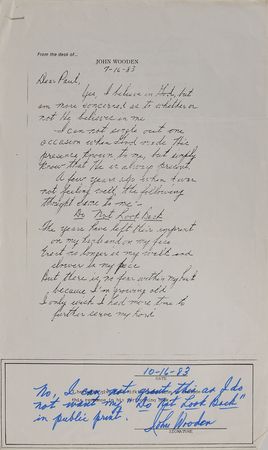 From the desk of...
JOHN WOODEN
7-16-83
Dear Paul,
Yes, I believe in God, but
am more concerned as to whether or
not He believes in me
I can not single out one
occasion when God made His
presence known to me, but simply
know that He is always present.
A few years ago when I was
not feeling well, the following
thought came to me -
Do Not Look Back
The years have left their imprint
on my hands and on my face
Erect no longer is my walk and
slower is my pace
But there is no fear within my heart
because I'm growing old
I only wish I had more time to
further serve my Lord
10-16-83
DATE
No, I can not grant this as I do
not want my "Do Not Look Back"
in public print.
John Wooden
SIGNATURE